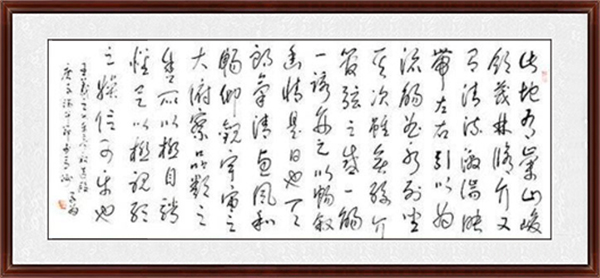 此地有崇山峻
領茂林脩竹又
有清流激湍映
帶左右引以為
流觴曲水列坐
其次雖無絲竹
管弦之盛一觴
一詠亦足以暢叙
幽情是日也天
朗氣清惠風和
暢仰觀宇宙之
大俯察品類之
盛所以遊目騁
懷足以極視聽
之娛信可樂也
王羲之